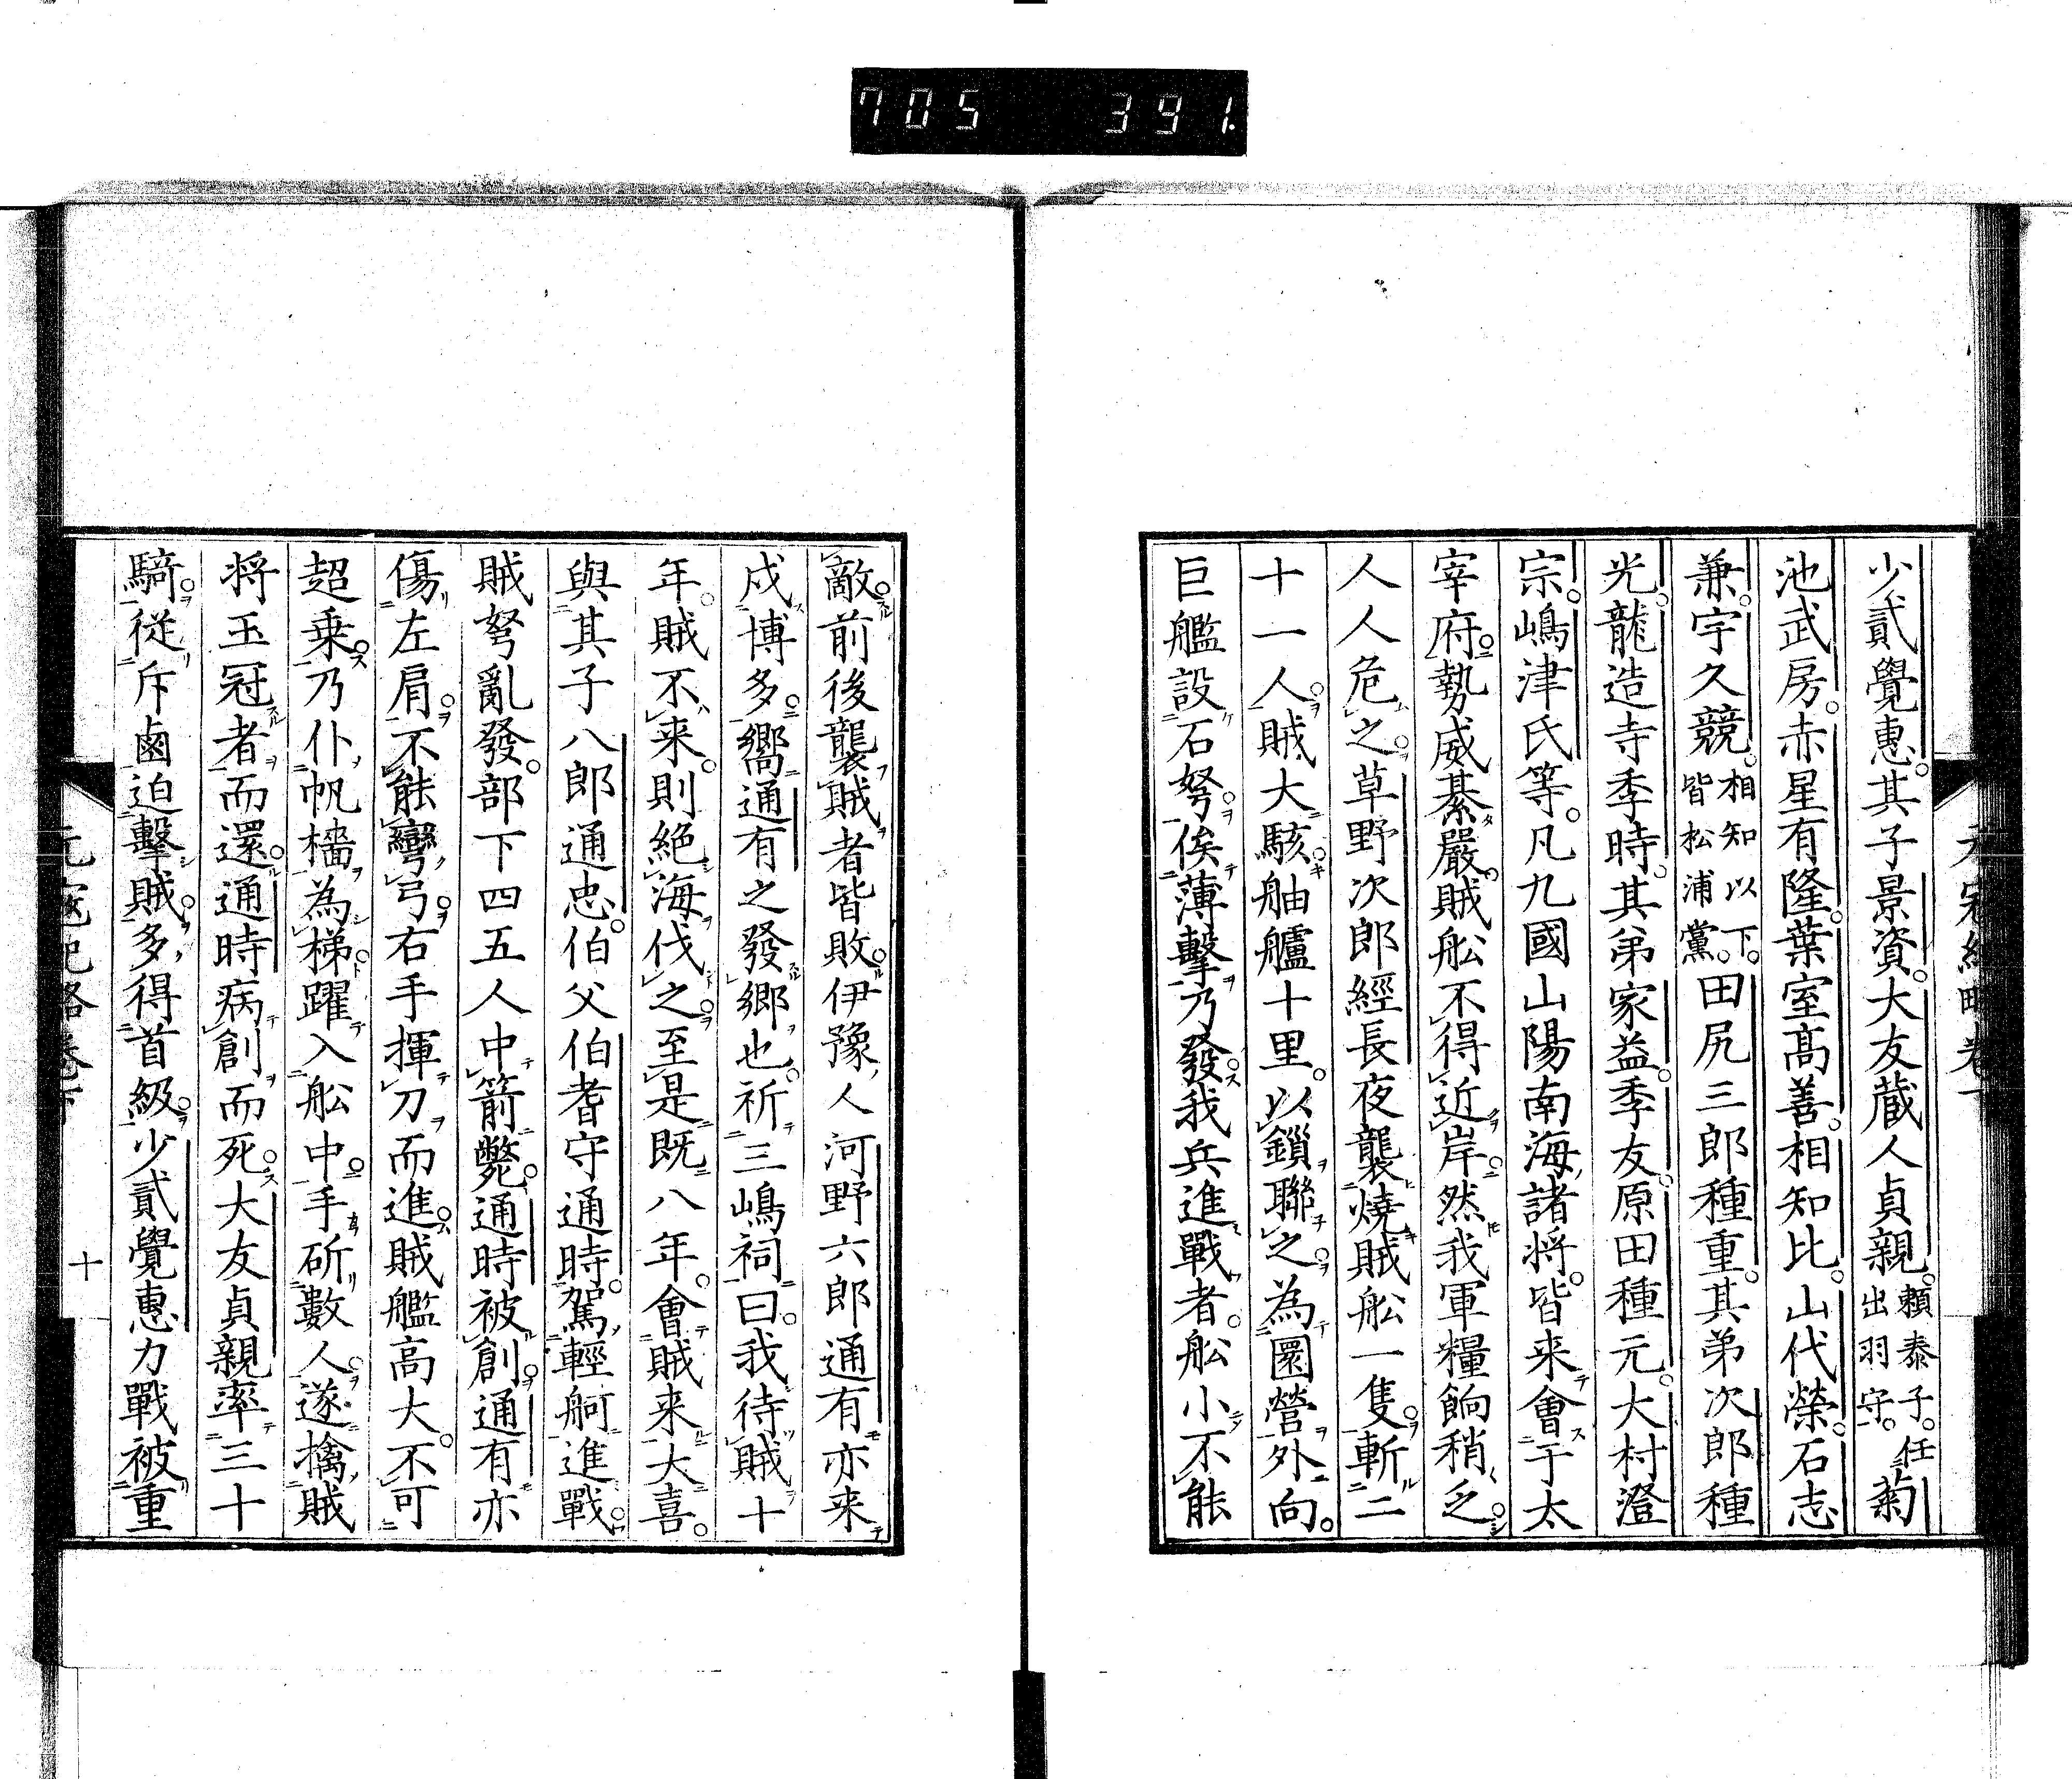 705 391.
少貳覺惠。其子景資。大友蔵人貞親。頼泰子。任出羽守。菊
池武房。赤星有隆。葉室髙善。相知比。山代榮。石志
兼。宇久競。相知以下。皆松浦黨。田尻三郎種重。其弟次郎種
光。龍造寺季時。其弟家益。季友。原田種元。大村澄
宗。嶋津氏等。凡九國山陽南海諸将。皆来會于太
宰府。勢威綦嚴。賊舩不得近岸。然我軍糧餉稍乏。
人人危之。草野次郎經長夜襲燒賊舩一隻。斬二
十一人。賊大駭。舳艫十里。以鎖聯之。為圜營外向。
巨艦設石弩。俟薄擊。乃發。我兵進戰者。舩小不能
敵。前後襲賊者皆敗。伊豫人河野六郎通有亦来
戍博多。嚮通有之發郷也。祈三嶋祠曰。我待賊十
年。賊不来。則絶海伐之。至是既八年。會賊来。大喜。
與其子八郎通忠。伯父伯耆守通時。駕輕舸進戰。
賊弩亂發。部下四五人中箭斃。通時被創。通有亦
傷左肩。不能彎弓。右手揮刀而進。賊艦高大。不可
超乗。乃仆帆檣為梯。躍入舩中。手斫數人。遂擒賊
将玉冠者而還。通時病創而死。大友貞親率三十
騎。從斥鹵迫擊賊。多得首級。少貳覺惠力戰被重
十